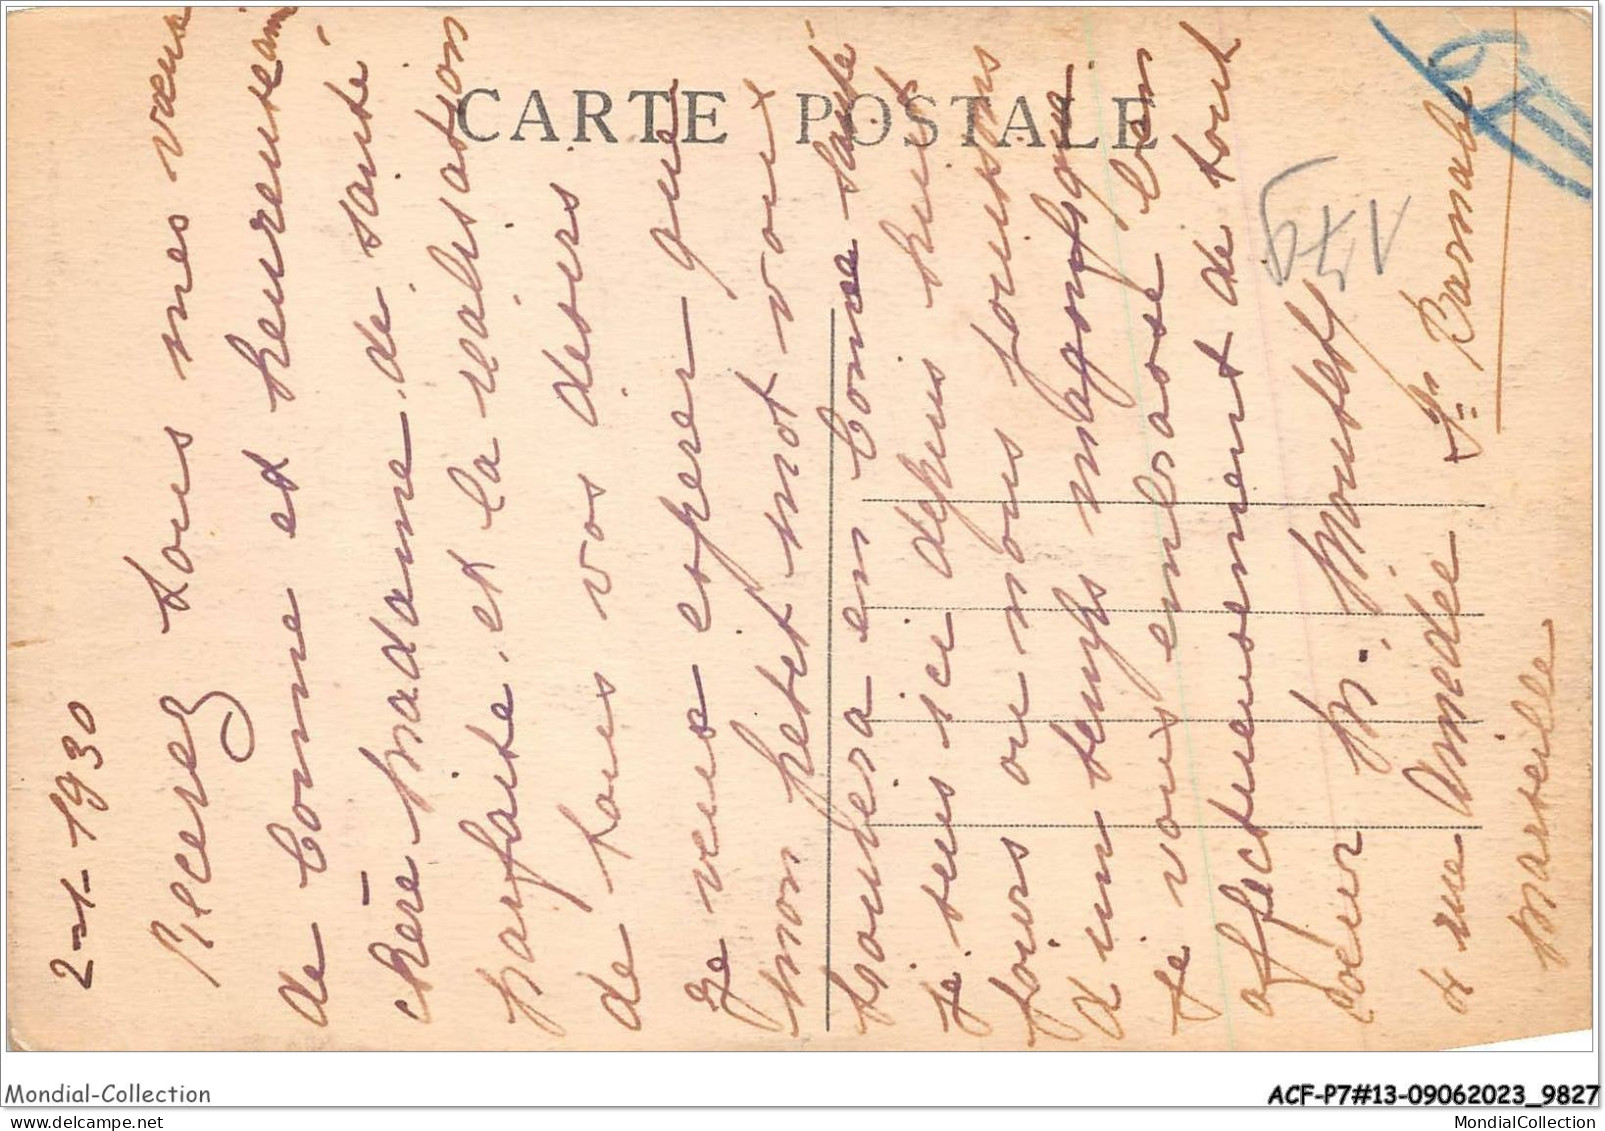 CARTE POSTALE
2-1-1930
Recevez tous mes vœux
de bonne et heureuse ann
chère Madame. de santé
parfaite. et la realisation
de tous vos desirs
Je veus esperer que
mon petit mot vous
trouvera en bonne santé
je suis ici depuis huit
jours ou nous jouissons
d'un temps magnifique
je vous embrasse bien
affectueusement de tout
cœur M. Moutet
4 rue Amedée St Barnabé
Marseille
179
Mondial-Collection
ACF-P7#13-09062023_9827
www.delcampe.net
MondialCollection